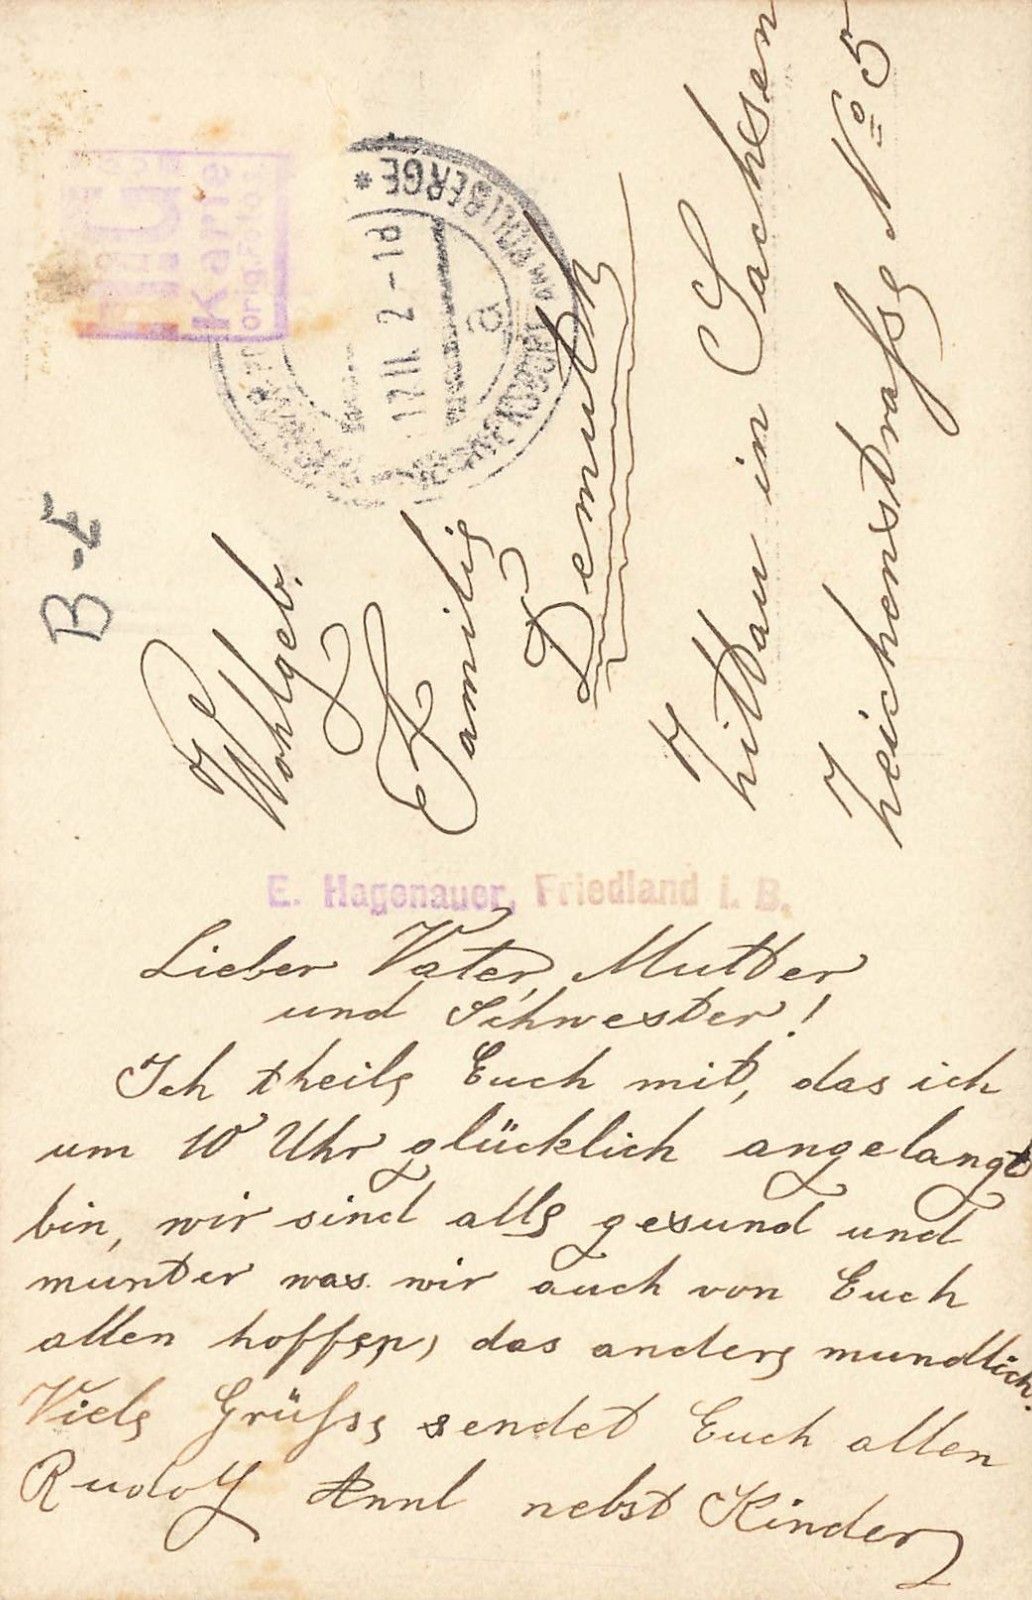 B-E
Wohlgeb.
Familie
Demuth
Zittau in Sachsen
Zeichenstraße No 5
Karte
orig. Foto
BERGE *
17 II 2-18
a
E. Hagenauer, Friedland i. B.
Lieber Vater, Mutter
und Schwester!
Ich theile Euch mit, das ich
um 10 Uhr glücklich angelangt
bin, wir sind alle gesund und
munter was wir auch von Euch
allen hoffen, das andere mundlich.
Viele Grüße sendet Euch allen
Rudolf Annl nebst Kinder